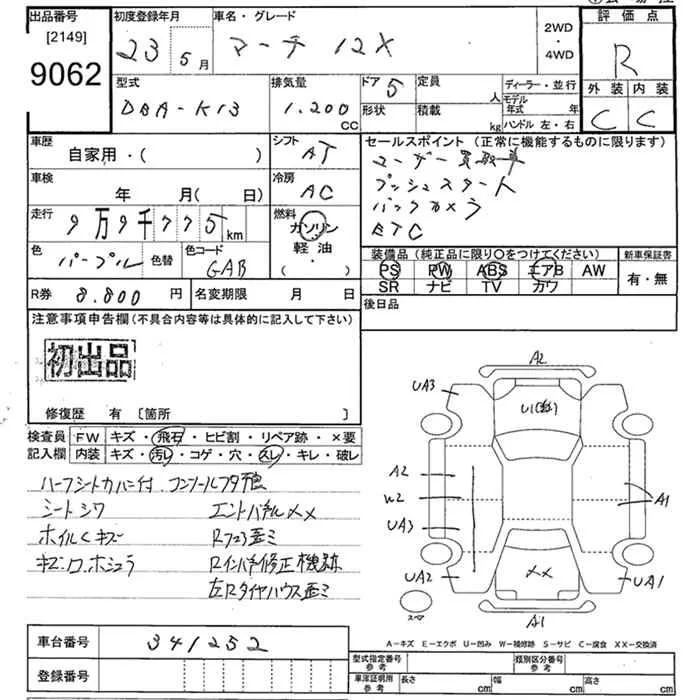 出品番号
[2149]
9062
初度登録年月
23 5月
車名・グレード
マーチ 12X
2WD
・
4WD
評価点
R
外装 内装
C C
型式
DBA-K13
排気量
1.200
CC
ドア 5
形状
定員
人
積載
kg
ディーラー・並行
モデル年式 年
ハンドル 左・右
車歴
自家用・( )
シフト
AT
車検
年 月(日)
冷房
AC
走行
9万9千775km
燃料
ガソリン
軽油
( ・ )
色
パープル
色替
色コード
GAB
R券 8.800円
名変期限 月 日
セールスポイント(正常に機能するものに限ります)
ユーザー買取車
プッシュスタート
バックカメラ
ETC
装備品(純正品に限り〇をつけてください)
PS PW ABS エアB AW
SR ナビ TV カワ
新車保証書
有・無
後日品
注意事項申告欄(不具合内容等は具体的に記入して下さい)
初出品
修復歴 有 [箇所 ]
検査員記入欄
FW キズ・飛石・ヒビ割・リペア跡・×要
内装 キズ・汚レ・コゲ・穴・スレ・キレ・破レ
ハーフシートカバー付 コンソールフタ
シートシワ
エンドパネルXX
ホイルCキズ
Rフロア歪ミ
Rインパネ修正機跡
左Rタイヤハウス歪ミ
A2
UA3
U1
A2
W2
UA3
A1
UA2
XX
UA1
A1
スペア
A-キズ E-エクボ U-凹み W-補修跡 S-サビ C-腐食 XX-交換済
車台番号
341252
登録番号
型式指定番号
参考
類別区分番号
参考
車庫証明用
参考
長さ cm
幅 cm
高さ cm